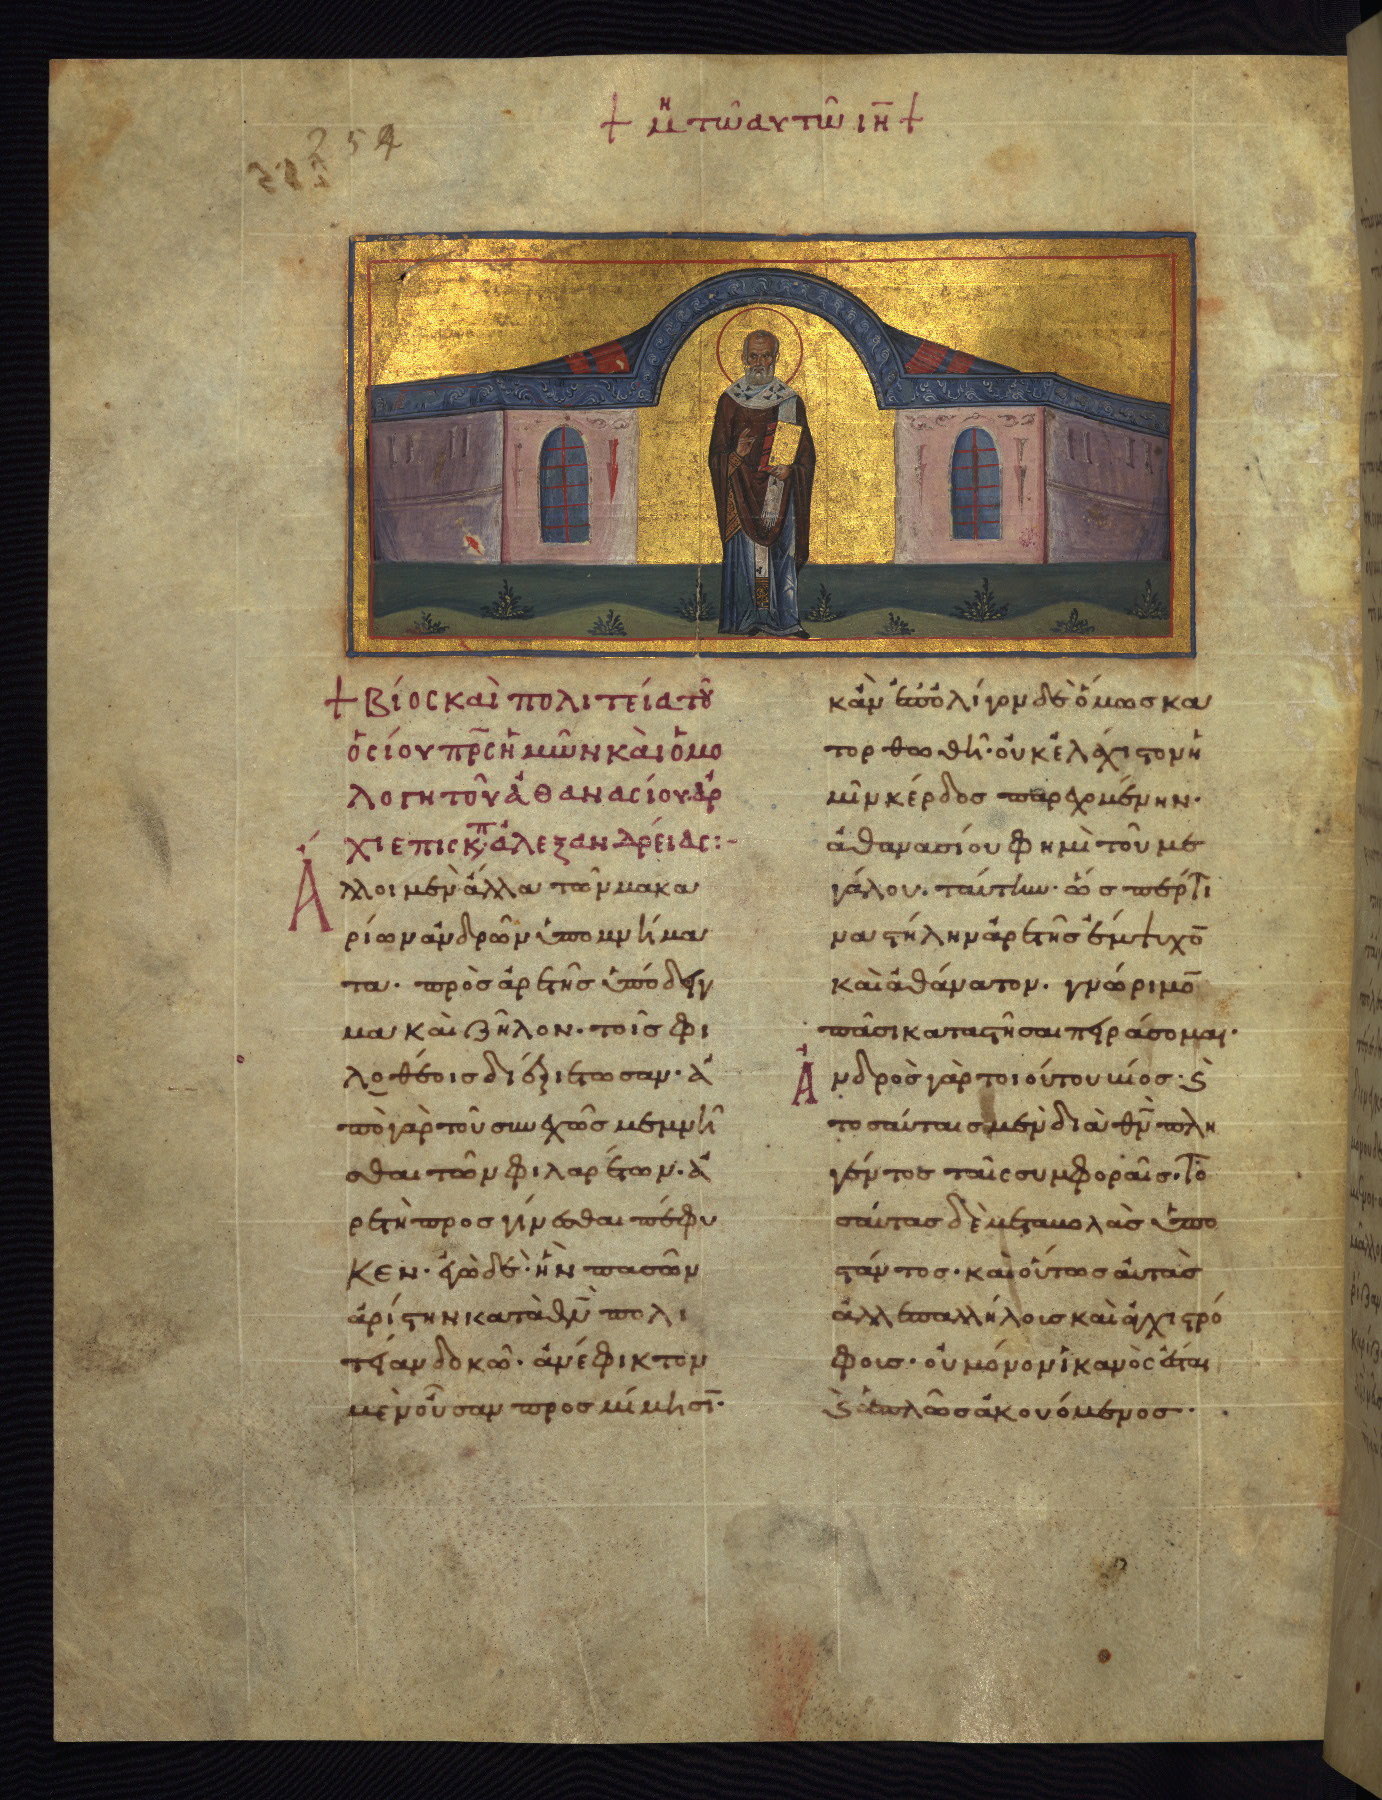 + μη τῶ αυτῶ ιη̄ +
254
+ βίος καὶ πολιτεία τοῦ
ὁσίου πρ̅ς ἡμῶν καὶ ὁμο
λογητοῦ ἀθανασίου ἀρ
χιεπισκπ ἀλεξανδρείας:-
Ἄλλοι μὲν ἄλλα τῶν μακα
ρίων ἀνδρῶν ὑπομνήμα
τα· πρὸς ἀρετῆς ὑπόδειγ
μα καὶ ζῆλον· τοῖς φι
λοθέοις διεξιέτωσαν· ἀ
πὸ γὰρ τοῦ συνεχῶς μεμνῆ
σθαι τῶν φιλαρέτων· ἀ
ρετὴ προσγίνεσθαι πέφυ
κεν· ἐγὼ δὲ· ἣν πασῶν
ἀρίστην κατὰ θν̅ πολι
τείαν δοκῶ· ἀνέφικτον
μὲν οὖσαν προς μίμησϊ̅·
κἂν ἐπολίγον δὲ ὅμως κα
τορθωθῆ· οὐκ ἐλάχιστον ἡ
μῖν κέρδος παρεχομένην·
ἀθανασίου φημὶ τοῦ με
γάλου. ταύτην· ὥσπερ τι
να στήλην ἀρετῆς ἔμψυχο̅
καὶ ἀθάνατον. γνώριμο̅
πᾶσι καταστῆσαι πειράσομαι·
Ἀνδρὸς γὰρ τοιούτου βίος· ϗ
τοσαύταις μὲν διὰ θν̅ πολη
γέντος ταῖς συμφοραῖς· το
σαύτας δὲ μεταβολὰς ὑπο
στάντος· καὶ οὕτως αὐτὰς
ἀλλεπαλλήλοις καὶ ἀγχιστρό
φοις· οὐ μόνον ἱκανὸς ἐστι
ϗ ἁπλῶς ἀκουόμενος·